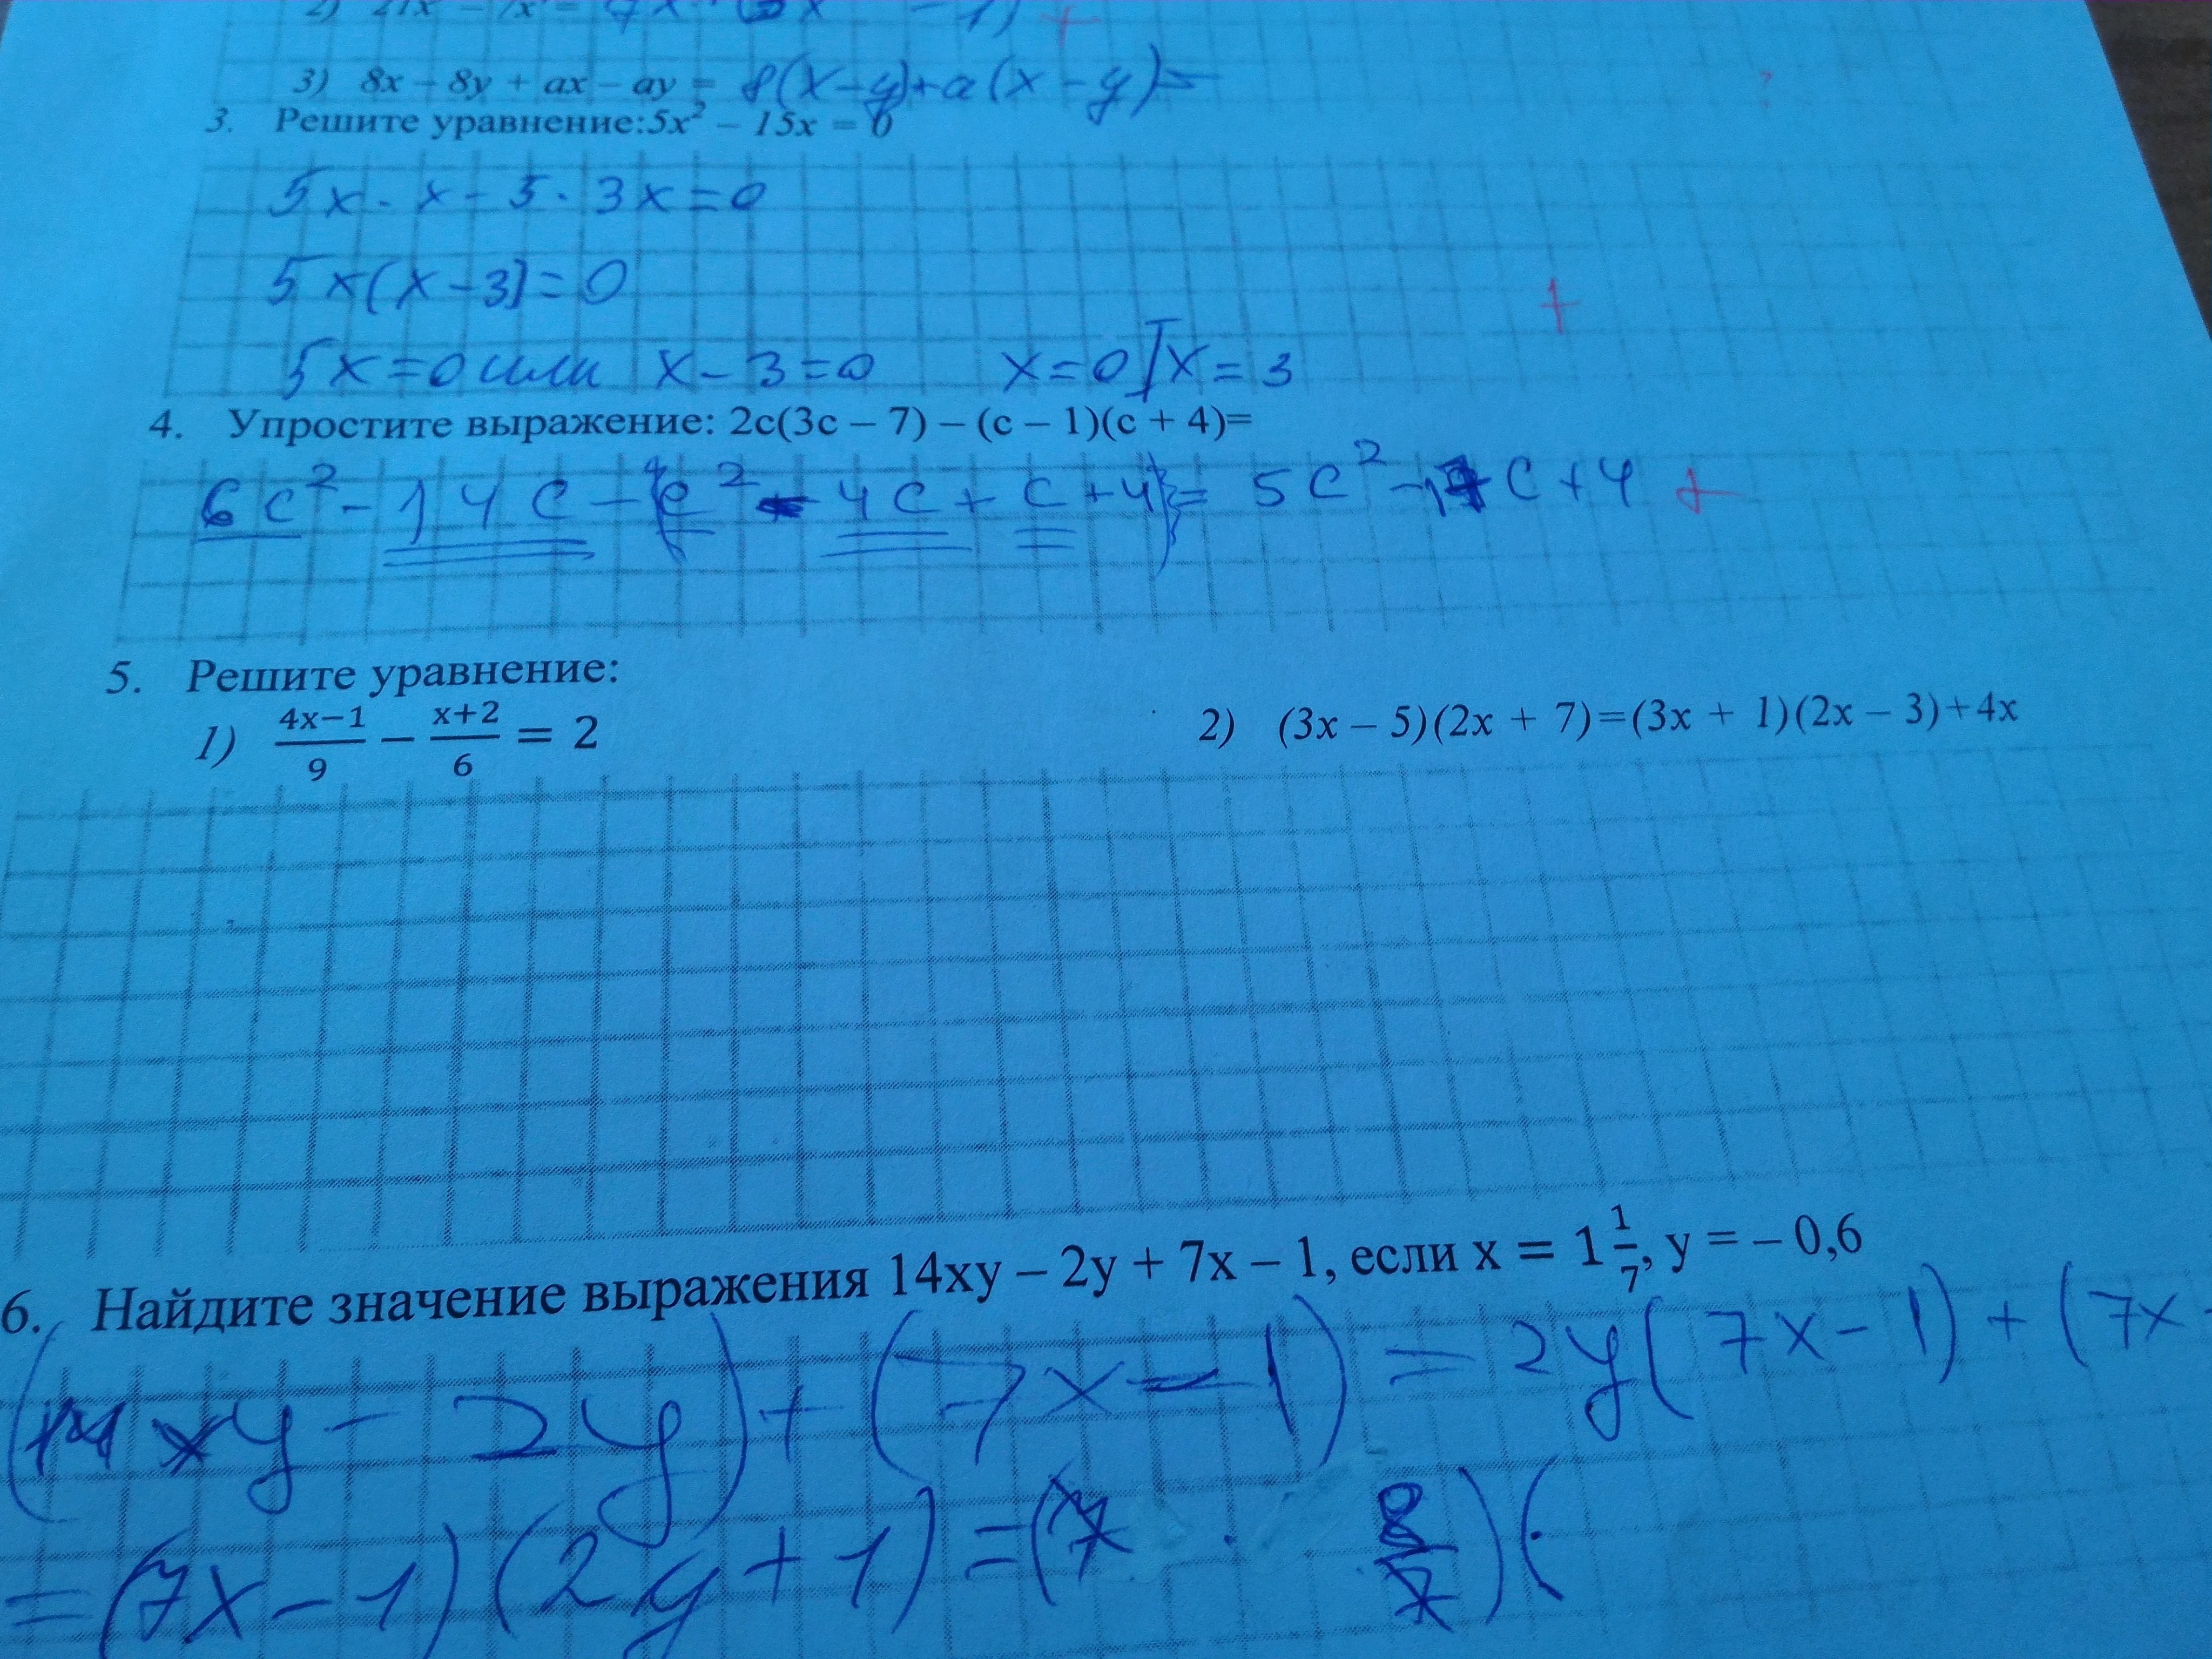 2) 21x – 7x = 7x (3x – 1) +
3) 8x – 8y + ax – ay = 8(x–y)+a(x–y)=
3. Решите уравнение:5x² – 15x = 0
5x · x – 5 · 3x = 0
5x(x–3)=0
+
5x=0 или x–3=0 x=0 x=3
4. Упростите выражение: 2c(3c – 7) – (c – 1)(c + 4)=
6c² – 14c – (c² – 4c + c + 4) = 5c² – 17c + 4 +
5. Решите уравнение:
1) (4x–1)/9 – (x+2)/6 = 2
2) (3x – 5)(2x + 7)=(3x + 1)(2x – 3)+4x
6. Найдите значение выражения 14xy – 2y + 7x – 1, если x = 1 1/7, y = – 0,6
(14xy – 2y) + (7x – 1) = 2y(7x – 1) + (7x
= (7x – 1)(2y + 1) = (7 · 8/7)(